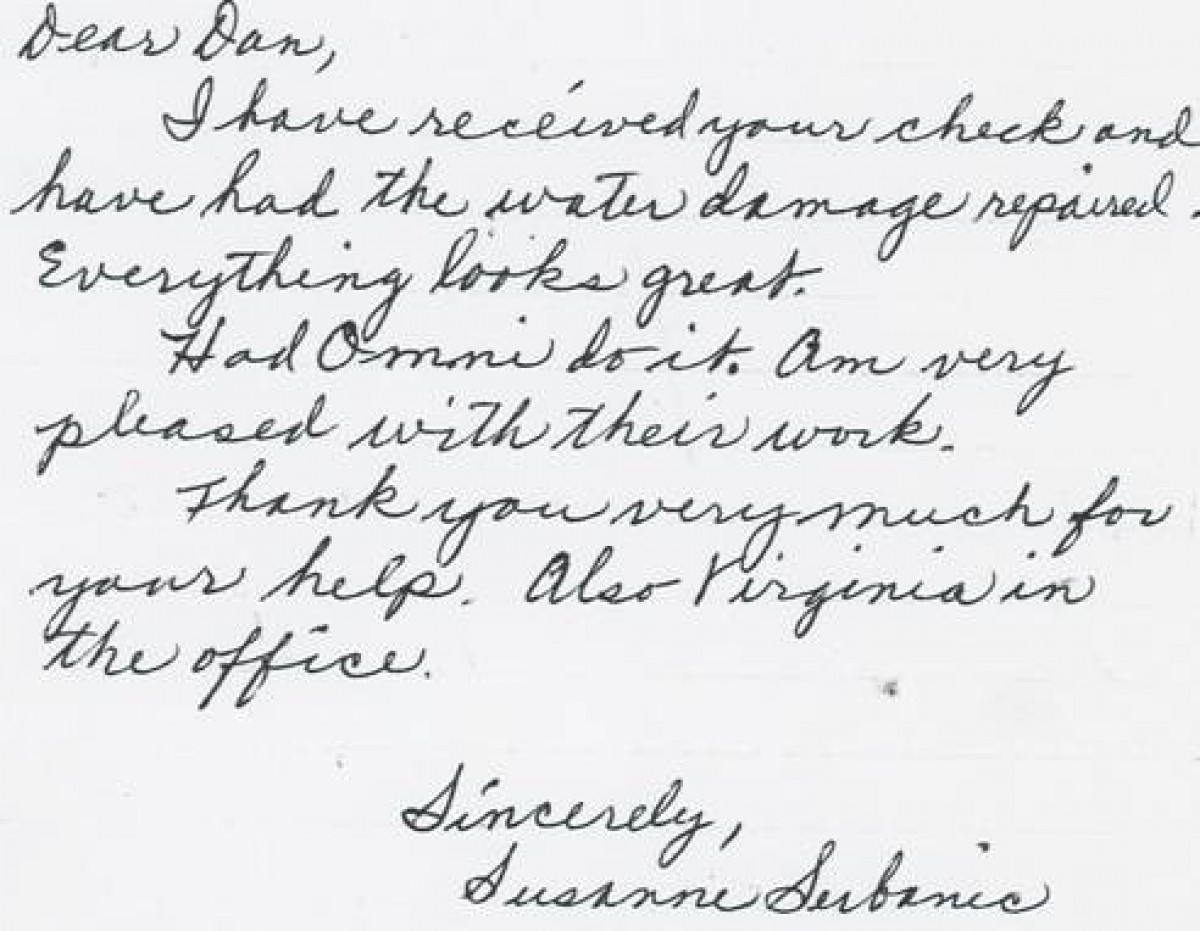 Dear Dan,
I have received your check and
have had the water damage repaired.
Everything looks great.
Had Omni do it. Am very
pleased with their work.
Thank you very much for
your help. Also Virginia in
the office.
Sincerely,
Susanne Serbanic